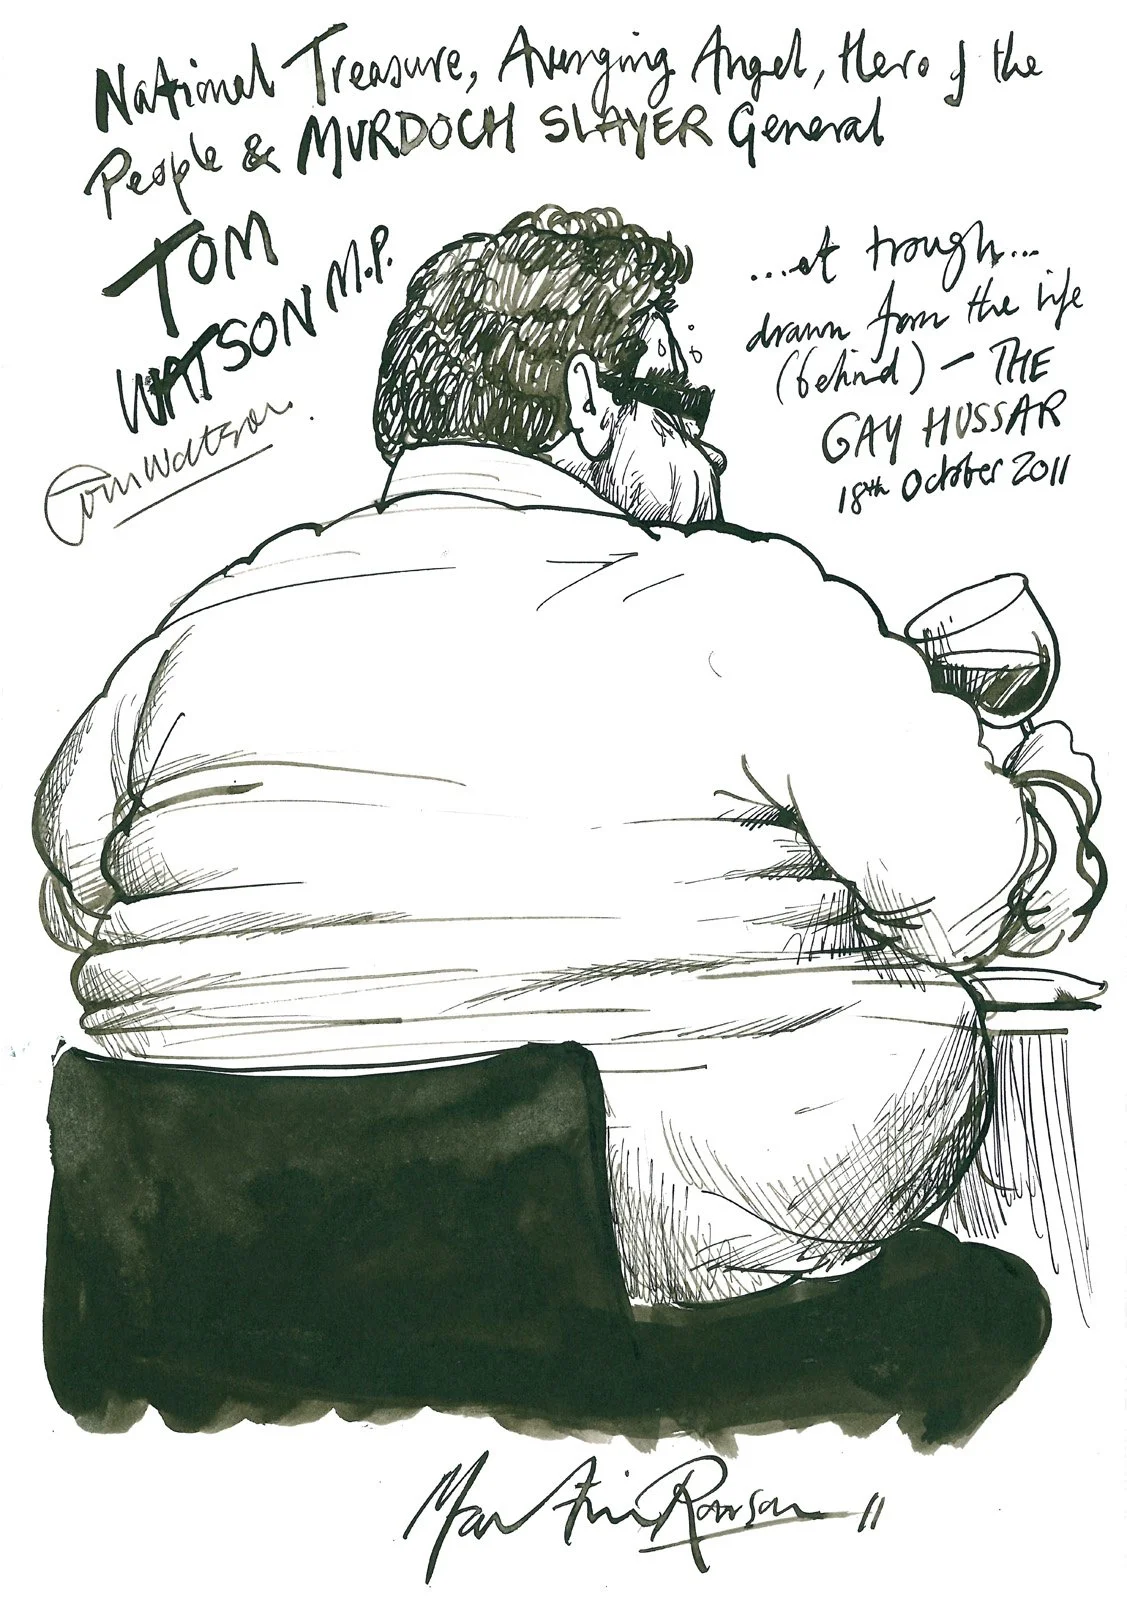 National Treasure, Avenging Angel, Hero of the
People & MURDOCH SLAYER General
TOM
WATSON M.P.
Tom Watson.
...at trough...
drawn from the life
(behind) – THE
GAY HUSSAR
18th October 2011
Martin Rowson 11